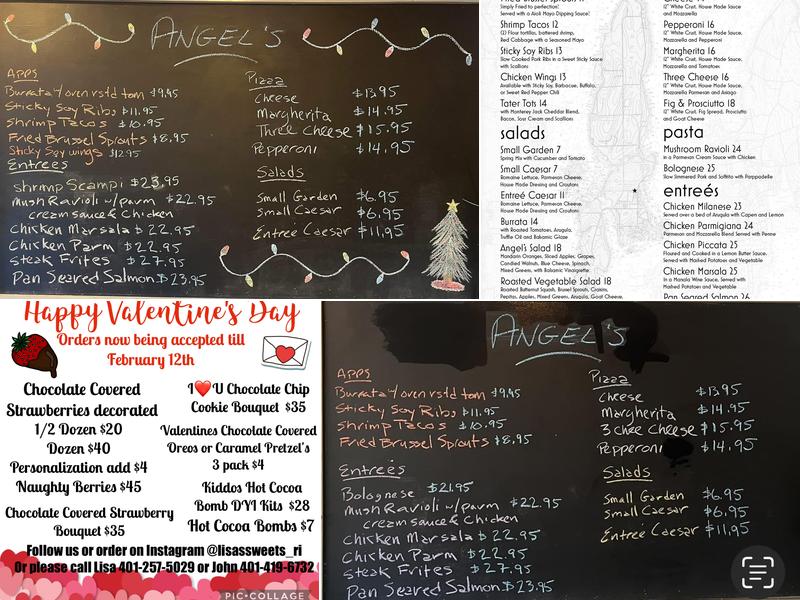 ANGEL'S
APPS
Burrata & oven rstd tom $9.95
Sticky Soy Ribs $11.95
Shrimp Tacos $10.95
Fried Brussel Sprouts $8.95
Sticky Soy wings $12.95
Entrees
shrimp Scampi $23.95
mush Ravioli w/parm $22.95
cream sauce & Chicken
Chicken Marsala $22.95
Chicken Parm $22.95
Steak Frites $27.95
Pan Seared Salmon $23.95
Pizza
Cheese $13.95
Margherita $14.95
Three Cheese $15.95
Pepperoni $14.95
Salads
Small Garden $6.95
Small Caesar $6.95
Entreé Caesar $11.95
Simply Fried to perfection!
Served with a Aioli Mayo Dipping Sauce!
Shrimp Tacos 12
(2) Flour tortillas, battered shrimp,
Red Cabbage with a Seasoned Mayo
Sticky Soy Ribs 13
Slow Cooked Pork Ribs in a Sweet Sticky Soy Sauce
with Scallions
Chicken Wings 13
Available with Sticky Soy, Barbecue, Buffalo,
or Sweet Red Pepper Chili
Tater Tots 14
with Monterey Jack Cheddar Blend,
Bacon, Sour Cream and Scallions
salads
Small Garden 7
Spring Mix with Cucumber and Tomato
Small Caesar 7
Romaine Lettuce, Parmesan Cheese,
House Made Dressing and Croutons
Entreé Caesar 11
Romaine Lettuce, Parmesan Cheese,
House Made Dressing and Croutons
Burrata 14
with Roasted Tomatoes, Arugula,
Truffle Oil and Balsamic Glaze
Angel's Salad 18
Mandarin Oranges, Sliced Apples, Grapes,
Candied Walnut, Blue Cheese, Spinach,
Mixed Greens, with Balsamic Vinaigrette
Roasted Vegetable Salad 18
Roasted Butternut Squash, Brussel Sprouts, Craisins,
Pepitas, Apples, Mixed Greens, Arugula, Goat Cheese,
12" White Crust, House Made Sauce
and Mozzarella
Pepperoni 16
12" White Crust, House Made Sauce,
Mozzarella and Pepperoni
Margherita 16
12" White Crust, House Made Sauce,
Mozzarella and Tomatoes
Three Cheese 16
12" White Crust, House Made Sauce,
Mozzarella Parmesan and Asiago
Fig & Prosciutto 18
12" White Crust, Fig Spread, Prosciutto
and Goat Cheese
pasta
Mushroom Ravioli 24
in a Parmesan Cream Sauce with Chicken
Bolognese 25
Slow Simmered Pork and Soffrito with Parppadelle
entreés
Chicken Milanese 23
Served over a bed of Arugula with Capers and Lemon
Chicken Parmigiana 24
Parmesan and Mozzarella Blend Served with Penne
Chicken Piccata 25
Floured and Cooked in a Lemon Butter Sauce,
Served with Mashed Potatoes and Vegetable
Chicken Marsala 25
in a Marsala Wine Sauce, Served with
Mashed Potatoes and Vegetable
Pan Seared Salmon 26
Happy Valentine's Day
Orders now being accepted till
February 12th
Chocolate Covered
Strawberries decorated
1/2 Dozen $20
Dozen $40
Personalization add $4
Naughty Berries $45
Chocolate Covered Strawberry
Bouquet $35
I❤️U Chocolate Chip
Cookie Bouquet $35
Valentines Chocolate Covered
Oreos or Caramel Pretzel's
3 pack $4
Kiddos Hot Cocoa
Bomb DYI Kits $28
Hot Cocoa Bombs $7
Follow us or order on Instagram @lisassweets_ri
Or please call Lisa 401-257-5029 or John 401-419-6732
PIC•COLLAGE
ANGEL'S
APPS
Burrata & oven rstd tom $9.95
Sticky Soy Ribs $11.95
Shrimp Tacos $10.95
Fried Brussel Sprouts $8.95
Entreés
Bolognese $21.95
mush Ravioli w/parm $22.95
cream sauce & Chicken
Chicken Marsala $22.95
Chicken Parm $22.95
Steak Frites $27.95
Pan Seared Salmon $23.95
Pizza
Cheese $13.95
Margherita $14.95
3 Chee Cheese $15.95
Pepperoni $14.95
Salads
Small Garden $6.95
Small Caesar $6.95
Entreé Caesar $11.95